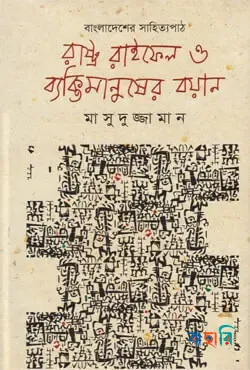 বাংলাদেশের সাহিত্যপাঠ
রাষ্ট্র রাইফেল ও
ব্যক্তিমানুষের বয়ান
মাসুদুজ্জামান